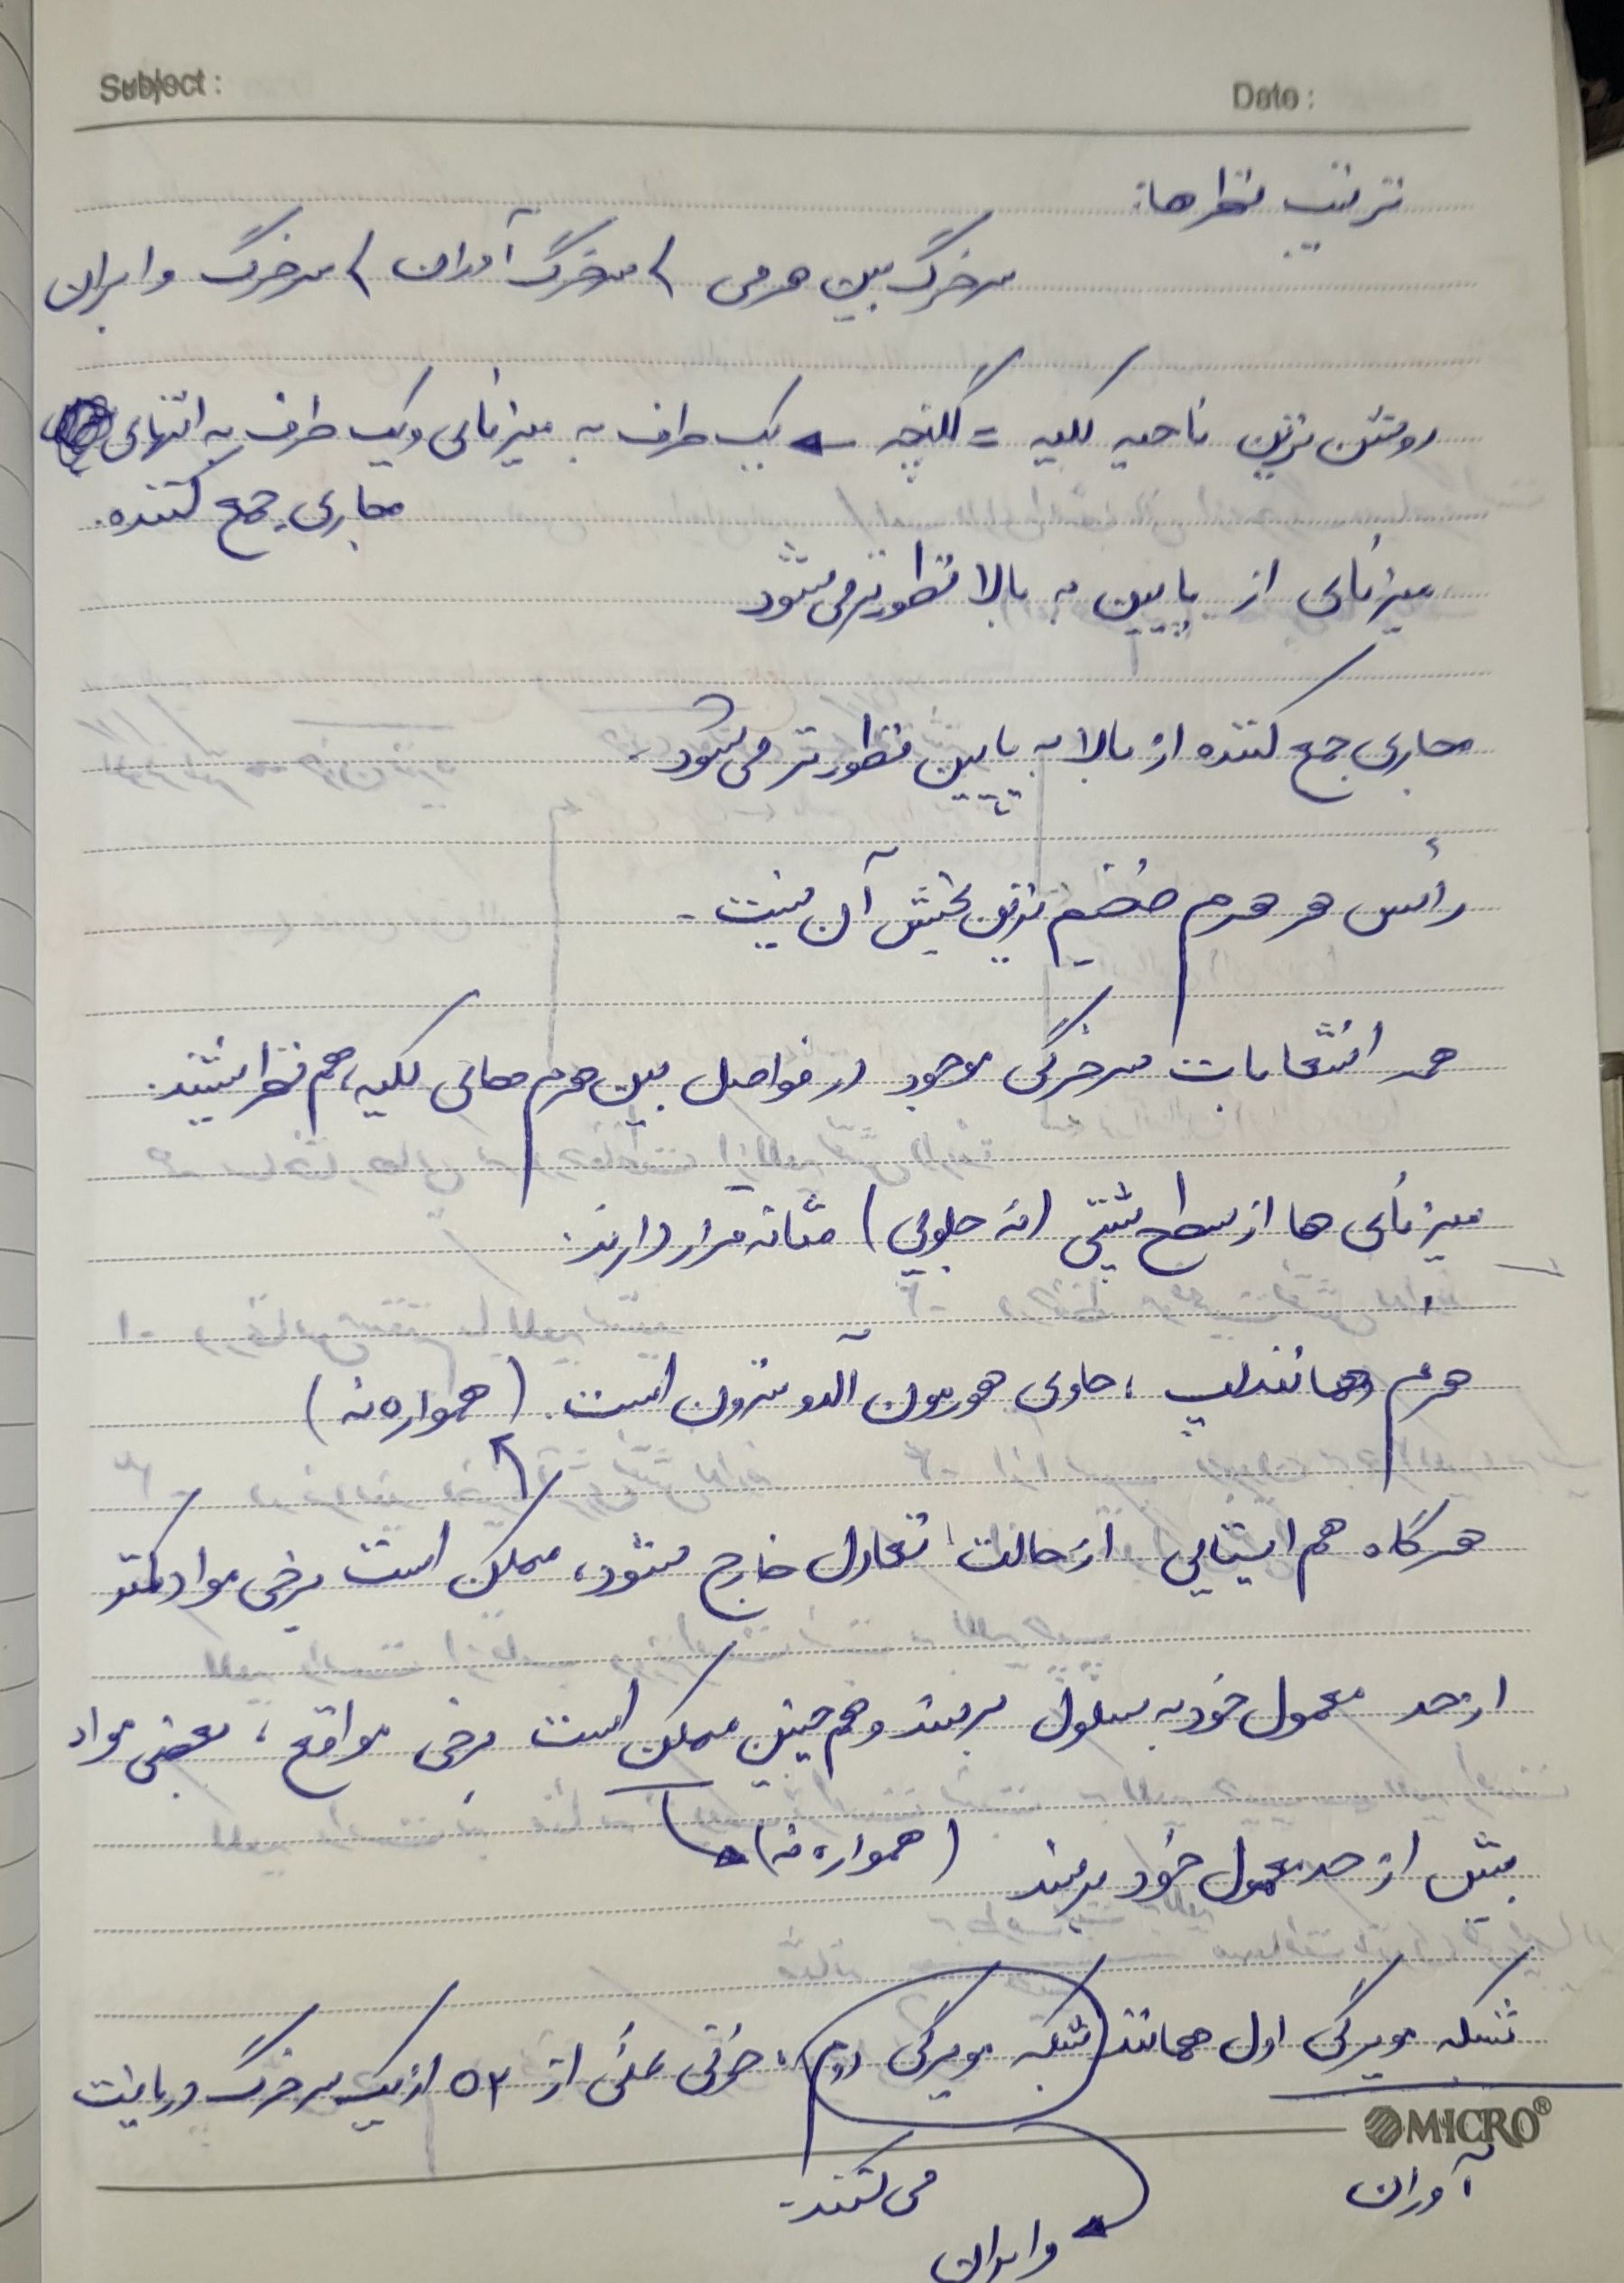 Subject :
Date :
ترتیب قطرها:
سرخرگ بین هرمی > سرخرگ آوران > سرخرگ وابران
روشن ترین ناحیه کلیه = لگنچه ← یک طرف به میزنای و یک طرف به انتهای
مجاری جمع کننده.
میزنای از پایین به بالا قطورتر می شود
مجاری جمع کننده از بالا به پایین قطورتر می شود.
رأس هر هرم ضخیم ترین بخش آن نیست.
همه انشعابات سرخرگی موجود در فواصل بین هرم های کلیه، هم قطر نیستند.
میزنای ها از سطح پشتی (نه جلویی) مثانه قرار دارند.
هرم همانند لپ، حاوی هورمون آلدوسترون است. (همواره نه)
هرگاه هم ایستایی از حالت تعادل خارج شود، ممکن است برخی مواد کمتر
از حد معمول خود به سلول برسند و هم چنین ممکن است برخی مواقع، بعضی مواد
بیش از حد معمول خود برسند (همواره نه)
شبکه مویرگی اول همانند شبکه مویرگی دوم، خونی غنی از O2 از یک سرخرگ دریافت
MICRO®
می کنند.
آوران
وابران